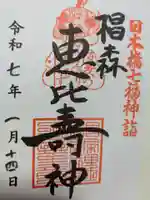 日本橋七福神詣
椙森
恵比寿神
令和七年
一月十四日